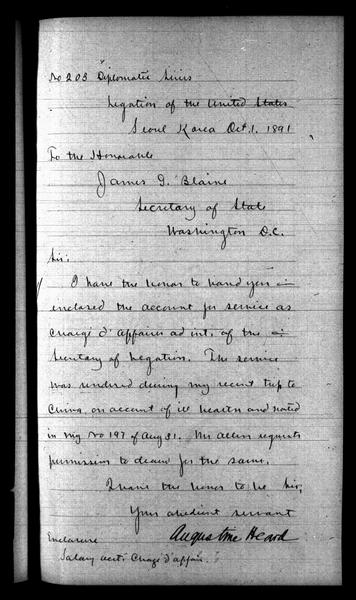 No 203 Diplomatic Series
Legation of the United States
Seoul Korea Oct. 1. 1891
To the Honorable
James G. Blaine
Secretary of State
Washington D.C.
Sir:
I have the honor to hand you
enclosed the account for service as
Chargé d'Affaires ad int. of the
Secretary of Legation. The service
was rendered during my recent trip to
China on account of ill health and noted
in my No 197 of Aug 31. Mr Allen requests
permission to draw for the same.
I have the honor to be Sir,
Your obedient servant
Augustine Heard
Enclosure
Salary acct. Chargé d'affair.